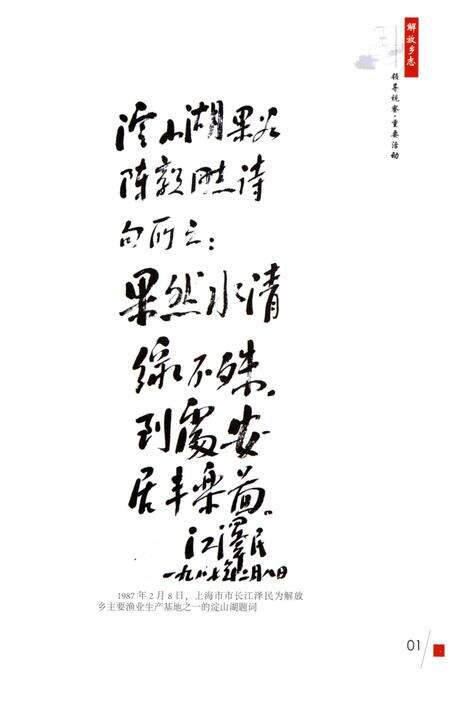 解放乡志
领导视察·重要活动
淀山湖果如
陈毅同志诗
句所云：
果然水清
绿不殊。
到处安
居丰乐图。
江泽民
一九八七年二月八日
1987年2月8日，上海市市长江泽民为解放
乡主要渔业生产基地之一的淀山湖题词
01